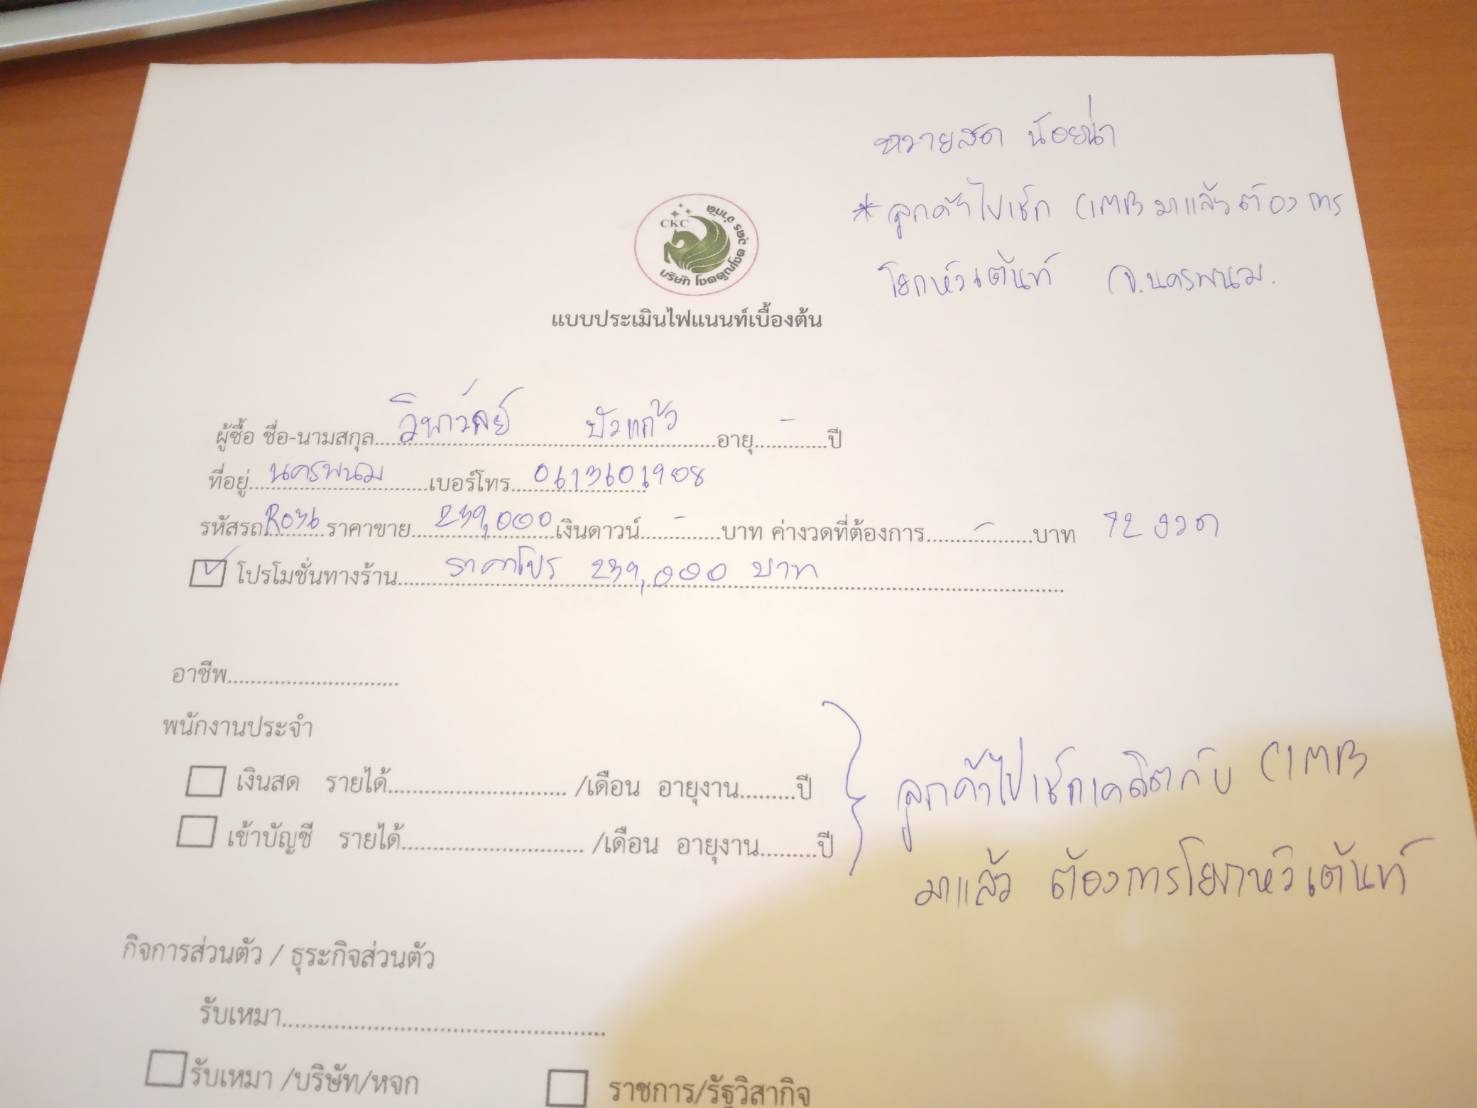 ขวายสด น้อยน่า
* ลูกค้าไปเช็ก CIMB มาแล้วต้องการ
โยกหัวเต้นท์ จ.นครพนม.
CKC
บริษัท โชคคูณโชค จำกัด
แบบประเมินไฟแนนท์เบื้องต้น
ผู้ซื้อ ชื่อ-นามสกุล วิภาวัลย์ บัวแก้ว อายุ - ปี
ที่อยู่ นครพนม เบอร์โทร 0613601908
รหัสรถ R036 ราคาขาย 239,000 เงินดาวน์ - บาท ค่างวดที่ต้องการ - บาท 72 งวด
โปรโมชั่นทางร้าน ราคาโปร 239,000 บาท
อาชีพ
พนักงานประจำ
เงินสด รายได้ /เดือน อายุงาน ปี
เข้าบัญชี รายได้ /เดือน อายุงาน ปี
ลูกค้าไปเช็กเคดิตกับ CIMB
มาแล้ว ต้องการโยกหัวเต้นท์
กิจการส่วนตัว / ธุระกิจส่วนตัว
รับเหมา
รับเหมา /บริษัท/หจก ราชการ/รัฐวิสากิจ